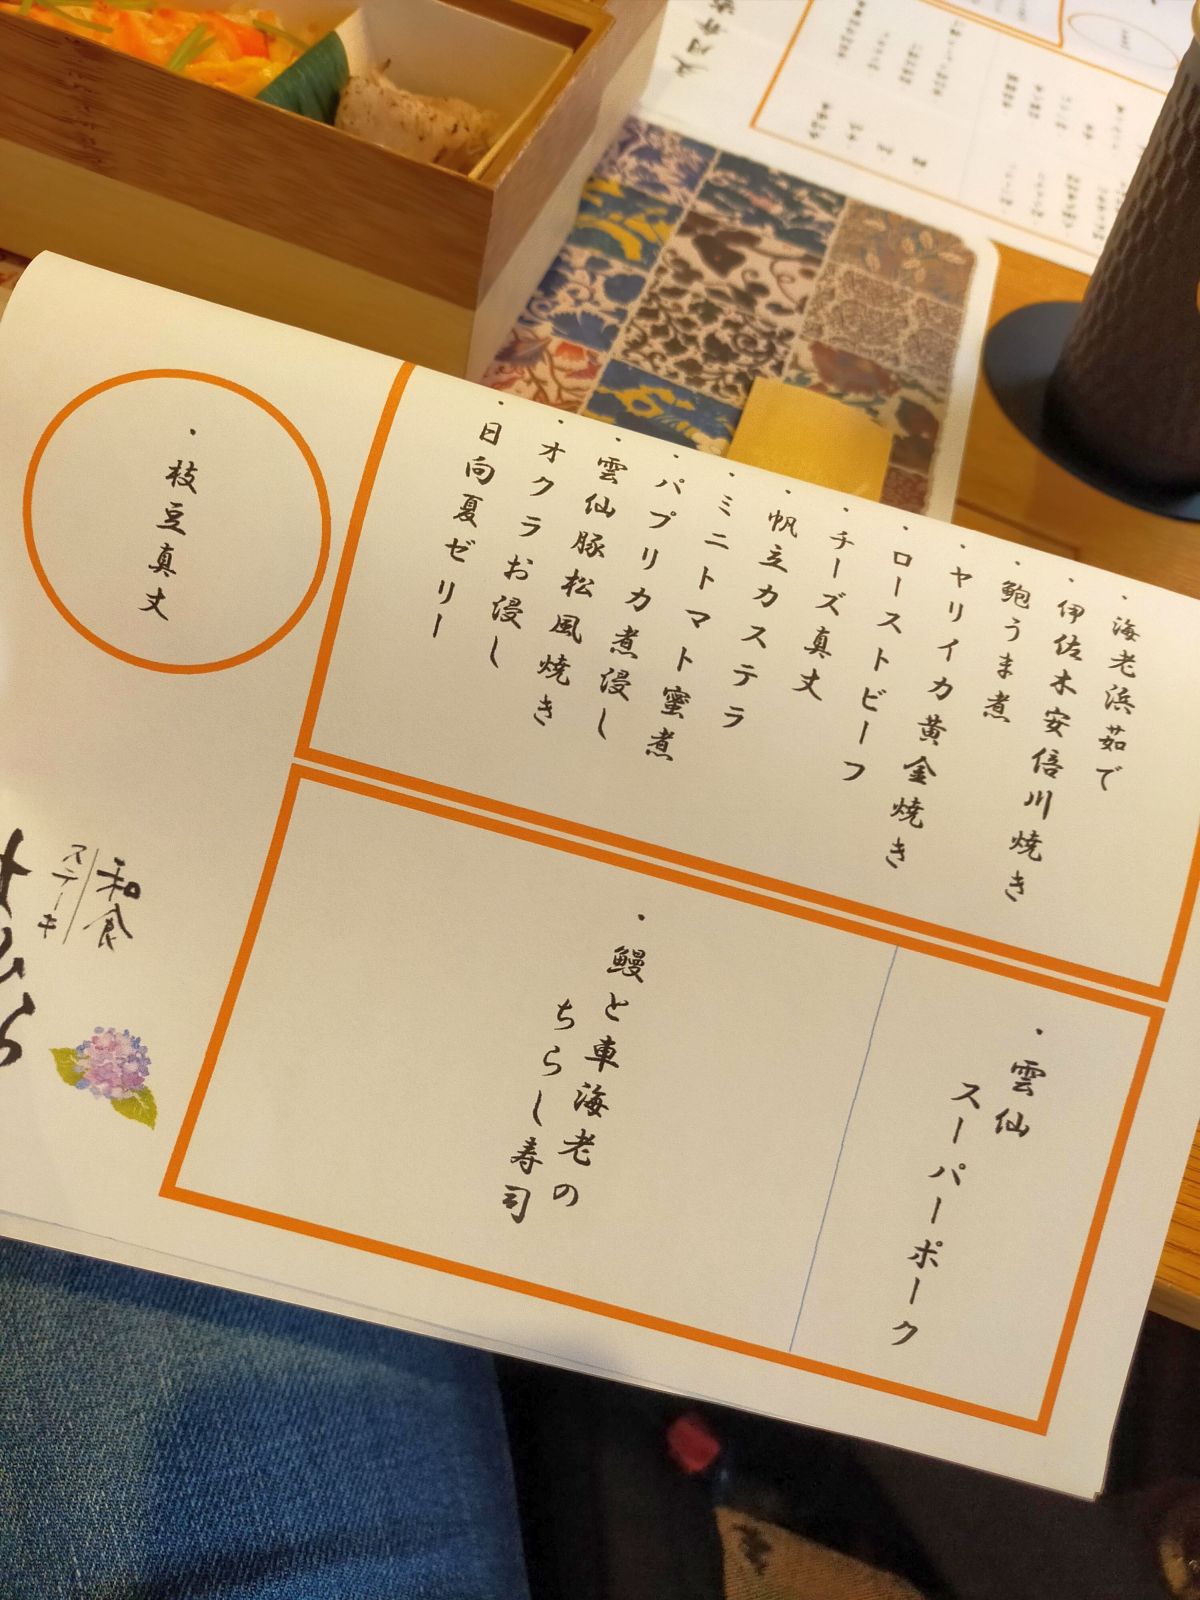 ・海老浜茹で
・伊佐木安倍川焼き
・鮑うま煮
・ヤリイカ黄金焼き
・ローストビーフ
・チーズ真丈
・帆立カステラ
・ミニトマト蜜煮
・パプリカ煮浸し
・雲仙豚松風焼き
・オクラお浸し
・日向夏ゼリー
・枝豆真丈
・雲仙
スーパーポーク
・鰻と車海老の
ちらし寿司
和食
ステーキ